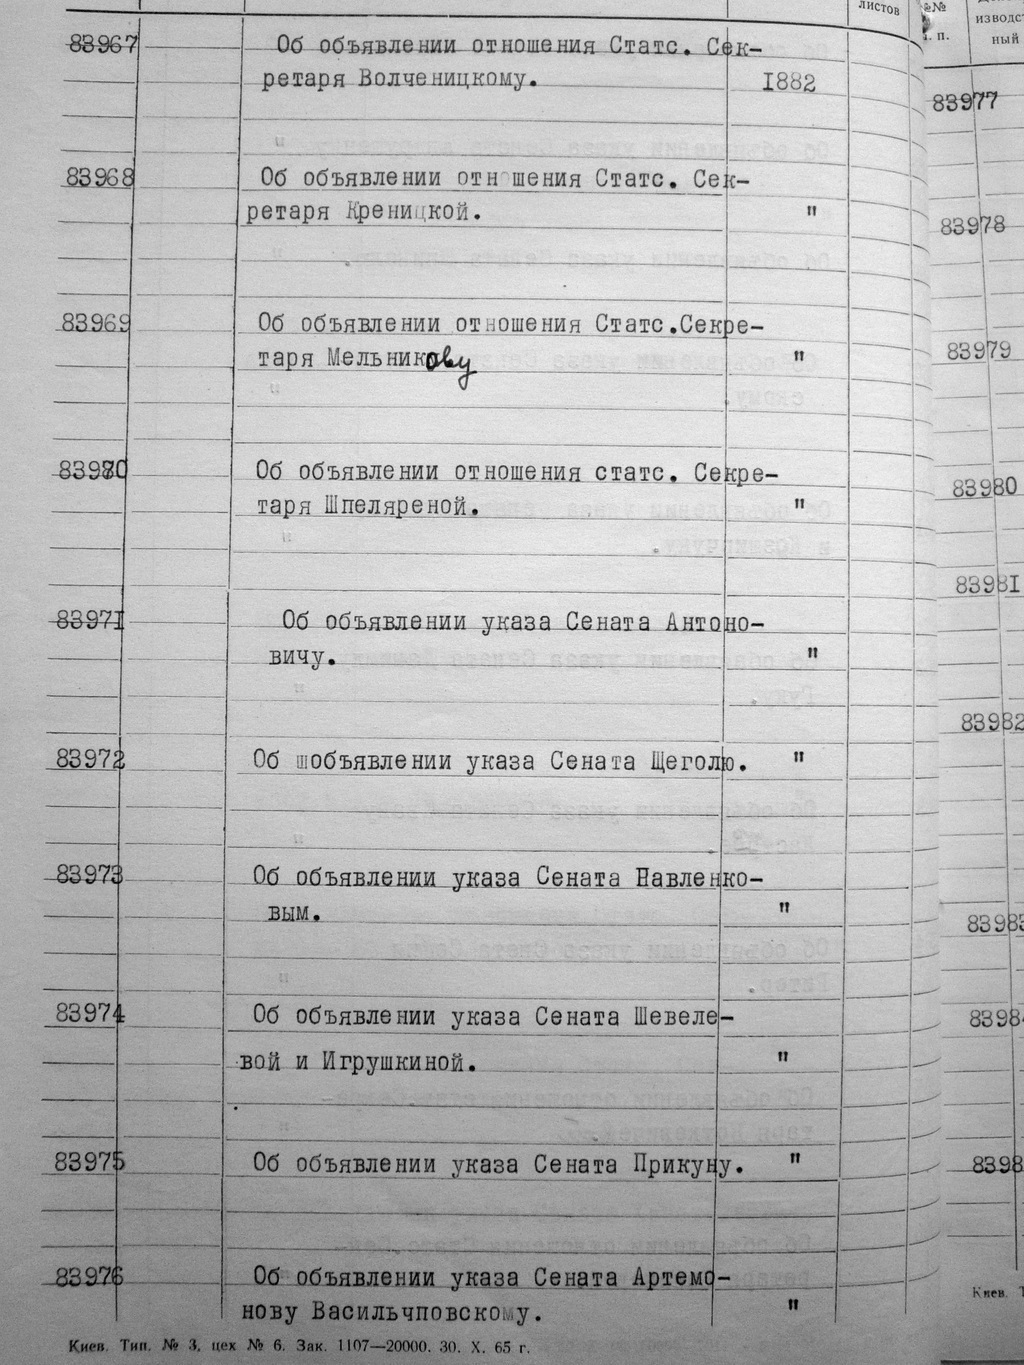 листов
83967 Об объявлении отношения Статс. Сек-
ретаря Волченицкому. 1882
83968 Об объявлении отношения Статс. Сек-
ретаря Креницкой. "
83969 Об объявлении отношения Статс.Секре-
таря Мельникову "
83980 Об объявлении отношения статс. Секре-
таря Шпеляреной. "
83971 Об объявлении указа Сената Антоно-
вичу. "
83972 Об шобъявлении указа Сената Щеголю. "
83973 Об объявлении указа Сената Навленко-
вым. "
83974 Об объявлении указа Сената Шевеле-
вой и Игрушкиной. "
83975 Об объявлении указа Сената Прикуну. "
83976 Об объявлении указа Сената Артемо-
нову Васильчповскому. "
Киев. Тип. № 3, цех № 6. Зак. 1107—20000. 30. X. 65 г.
№№
п.
изводст
ный
83977
83978
83979
83980
83981
83982
83983
8398
8398
Киев.